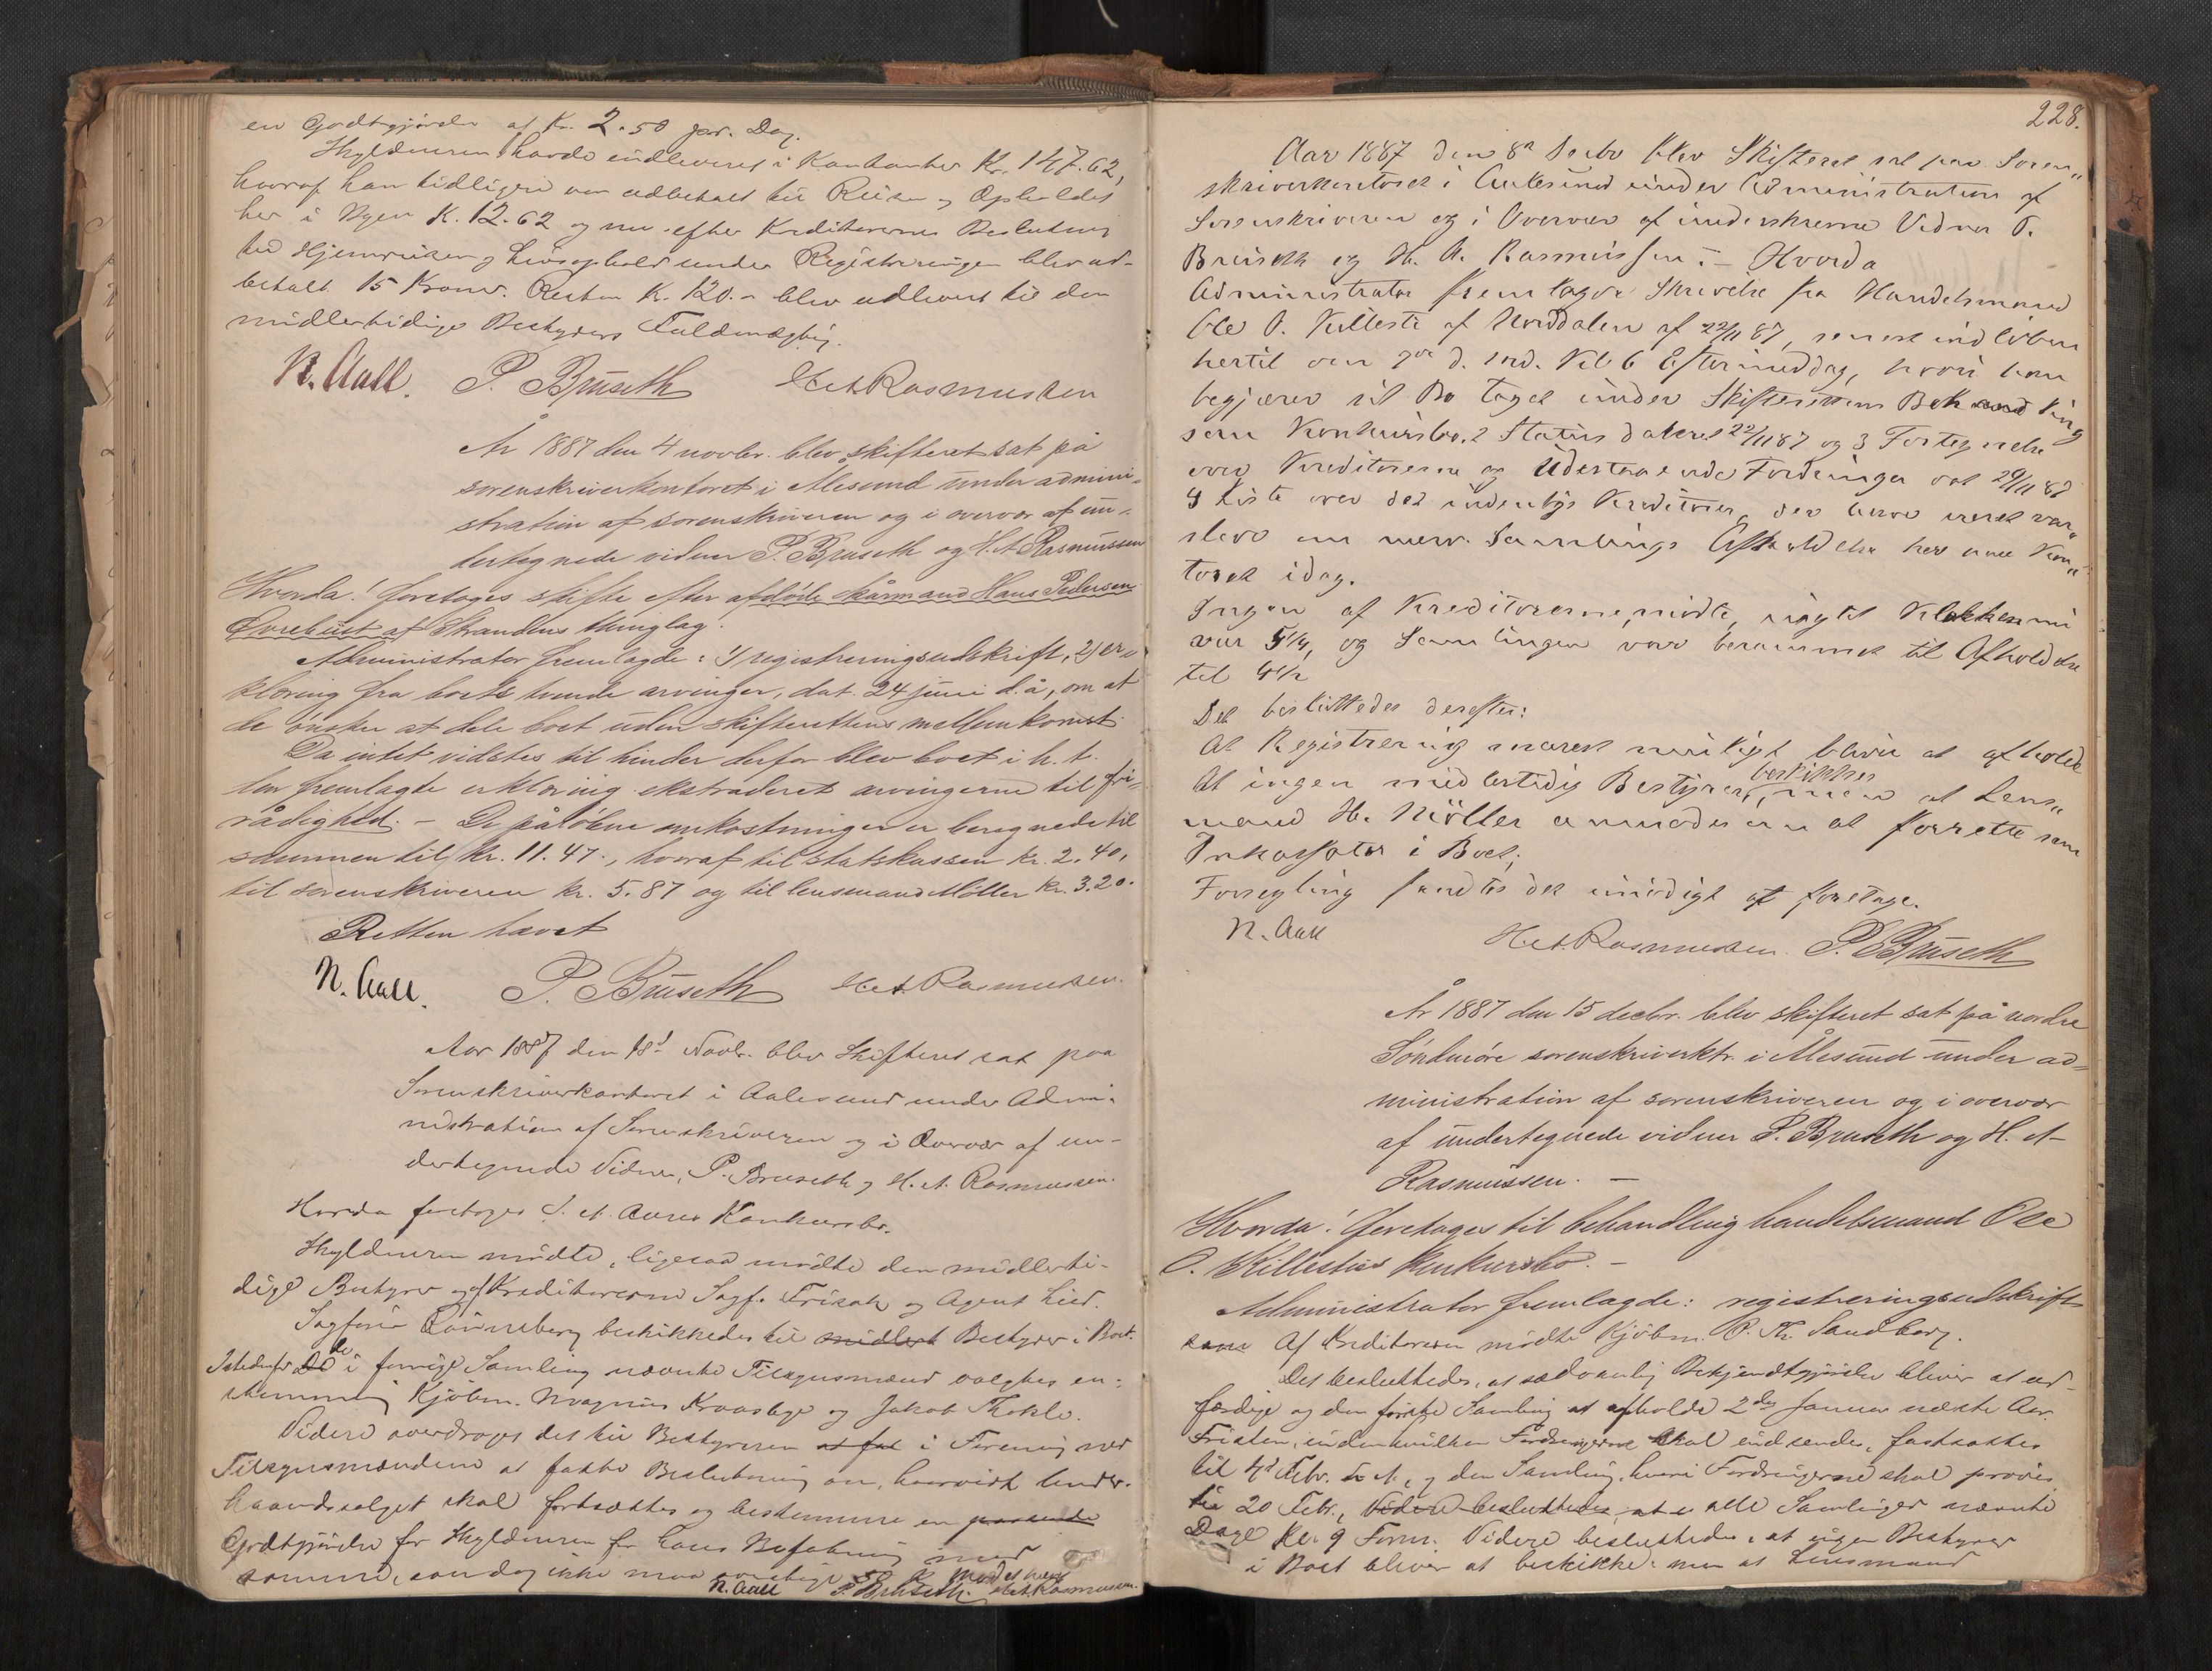 en Godtgjørelse af Kr. 2.50 pr. Dag.
Skyldneren havde indleveret i Kontanter Kr. 147.62,
hvoraf han tidligere var udbetalt til Reisen og Opholdet
her i Byen K. 12.62 og nu efter Kreditorernes Beslutning
til Hjemreisen og Livsophold under Registreringen blev ud-
betalt 15 Kroner. Resten K. 120.- blev udleveret til den
midlertidige Bestyrers Fuldmægtig.
N. Aall. P. Bruseth H. A. Rasmussen
År 1887 den 4 novbr. blev skifteret sat på
sorenskriverkontoret i Ålesund under admini-
stration af sorenskriveren og i overvær af un-
dertegnede vidner P. Bruseth og H. A. Rasmussen
Hvorda! foretoges skifte efter afdøde kårmand Hans Pedersen
Øvrebust af Strandens thinglag.
Administrator fremlagde: 1) registreringsudskrift, 2) er-
klæring fra boets arvinger, dat. 24 juni d. å., om at
de ønsker at dele boet uden skifterettens mellemkomst.
Da intet vidstes til hinder derfor blev boet i h. t.
den fremlagte erklæring ekstraderet arvingerne til fri
rådighed. – De påløbne omkostninger er beregnede til
sammen til kr. 11.47., hvoraf til statskassen kr. 2.40,
til sorenskriveren kr. 5.87 og til lensmand Møller kr. 3.20.
Retten hævet
N. Aall. P. Bruseth H. A. Rasmussen.
Aar 1887 den 18d Novbr. blev Skifteret sat paa
Sorenskriverkontoret i Aalesund under Admi-
nistration af Sorenskriveren og i Overvær af un-
dertegnede Vidner, P. Bruseth og H. A. Rasmussen.
Hvorda foretoges Konkursbo.
Skyldneren mødte, ligesaa mødte den midlerti-
dige Bestyrer og af Kreditorerne Sagf. Frisak og Agent Lied.
Sagfører Rønneberg beskikkedes til midlert Bestyrer i Boet.
Istedenfor de i forrige Samling nævnte Tilsynsmænd valgtes en-
stemmig Kjøbm. Magnus og Jakob Thokle.
Videre overdroges det til Bestyreren at fat i Forening med
Tilsynsmændene at fatte Beslutning om, hvorvidt Under-
haandssalget skal fortsættes og bestemme en passende
Godtgjørelse for Skyldneren for hans Befatning med
samme, som dog ikke maa overstige Mødet hævet
N. Aall P. Bruseth H. A. Rasmussen.
228.
Aar 1887 den 8de Decbr blev Skifteret sat paa Soren-
skriverkontoret i Aalesund under Administration af
Sorenskriveren og i Overvær af underskrevne Vidner P.
Bruseth og H. A. Rasmussen. – Hvorda
Administrator fremlagde Skrivelse fra Handelsmand
Ole O. Killesti af Norddalen af 22/11 87, senest indløben
hertil den 7de d. Md. Kl. 6 Eftermiddag, hvori han
begjærer sit Bo taget under Skifterettens Behandling
som Konkursbo. 2 Status dateret 22/11 87 og 3 Fortegnelse
over Kreditorerne og Udestaaende Fordringer dat 29/11 87
4 Liste over det indenbys Kreditorer, der havde været var-
slede om nærv. Samlings Afholdelse her paa Kon-
toret idag.
Ingen af Kreditorerne mødte, uagtet Klokken nu
var 5 1/4, og Samlingen var berammet til Afholdelse
til 4 1/2
Det besluttedes derefter:
At Registrering snarest muligt bliver at afholde
At ingen midlertidig Bestyrer beskikkes, men at Lens-
mand H. Møller anmodes om at forrette som
Inkassator i Boet;
Forsegling fandtes det unødigt at foretage.
N. Aall H. A. Rasmussen. P. Bruseth
År 1887 den 15 decbr. blev skifteret sat på nordre
Søndmøre sorenskriverktr. i Ålesund under ad-
ministration af sorenskriveren og i overvær
af undertegnede vidner P. Bruseth og H. A.
Rasmussen. –
Hvorda! foretoges til behandling handelsmand Ole
O. Killestis konkursbo. –
Administrator fremlagde: registreringsudskrift
Af Kreditorerne mødte Kjøbm. P. Th. Sandborg.
Det besluttedes, at sædvanlig Bekjendtgjørelse bliver at ud-
færdige og den første Samling at afholde 2den Januar næste Aar.
Fristen, inden hvilken Fordringerne skal indsendes, fastsattes
til 4d Febr. s. A., og den Samling, hvori Fordringerne skal prøves
til 20 Febr., Videre besluttedes, at alle Samlinger nævnte
Dage Kl. 9 Form. Videre besluttedes, at ingen Bestyrer
i Boet bliver at beskikke, men at Lensmand